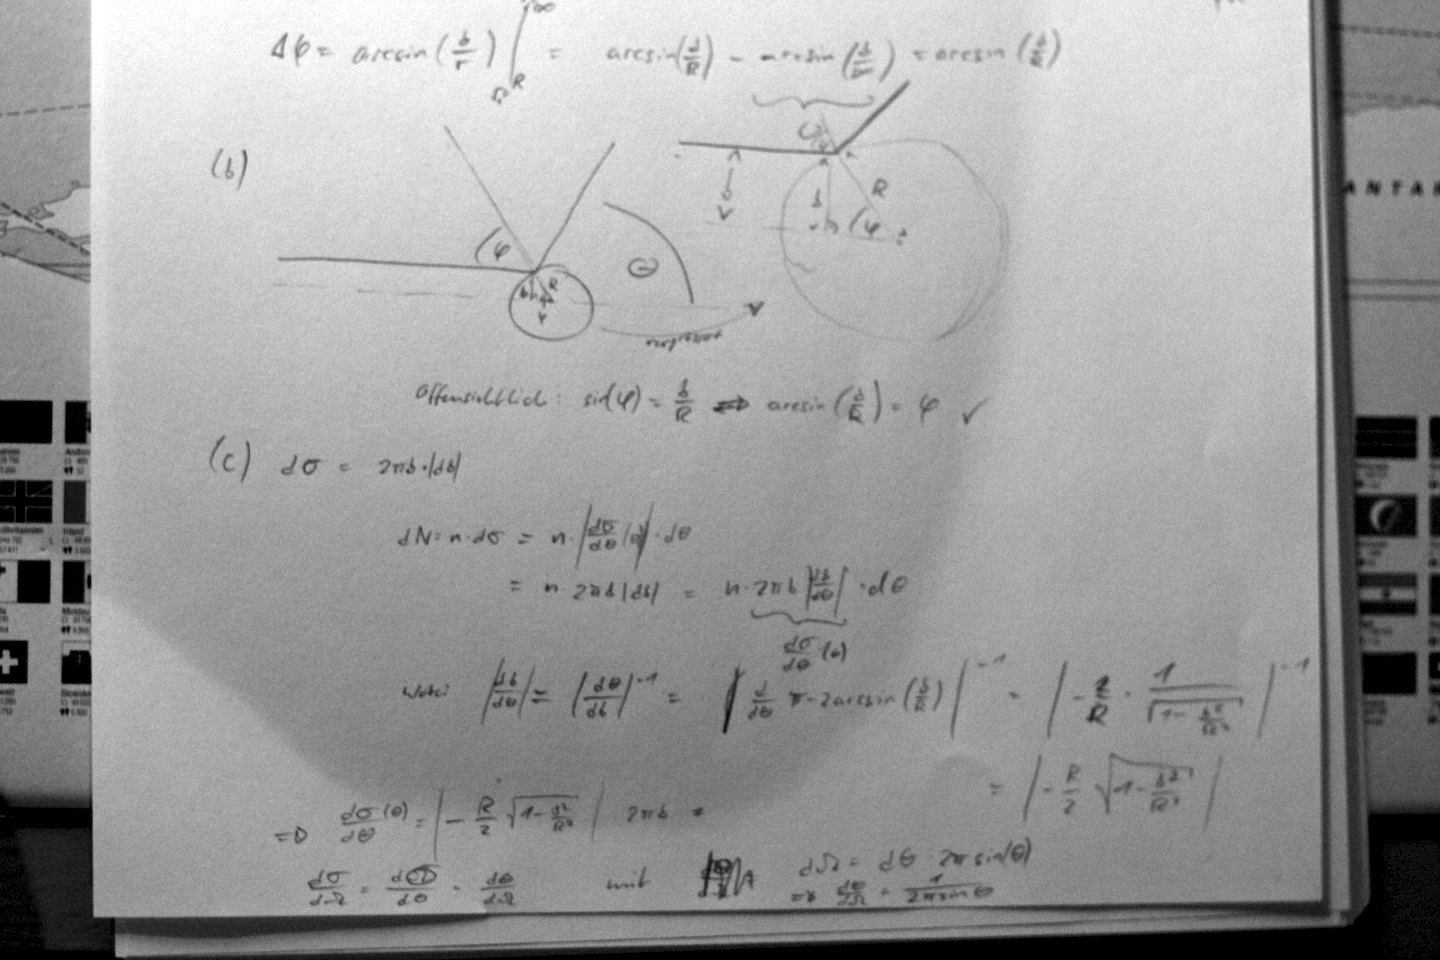 Δφ = arcsin(b/r) |_R^∞ = arcsin(b/R) - arcsin(b/∞) = arcsin(b/R)
(b)
φ
R
b
Θ
R
b
φ
b
Offensichtlich: sin(φ) = b/R ⟺ arcsin(b/R) = φ ✓
(c) dσ = 2πb·|db|
dN = n·dσ = n·|dσ/dθ (θ)|·dθ
= n 2πb|db| = n·2πb|db/dθ|·dθ
dσ/dθ (θ)
wobei |db/dθ| = |dθ/db|^-1 = |d/dθ π-2arcsin(b/R)|^-1 = |-2/R · 1/√(1-b²/R²)|^-1
= |-R/2 √(1-b²/R²)|
=> dσ/dθ (θ) = |-R/2 √(1-b²/R²)| 2πb
dσ/dΩ = dσ/dθ · dθ/dΩ mit dΩ = dθ·2π sin(θ)
=> dθ/dΩ = 1/(2π sin θ)
ANTAR
Irland
Moldau